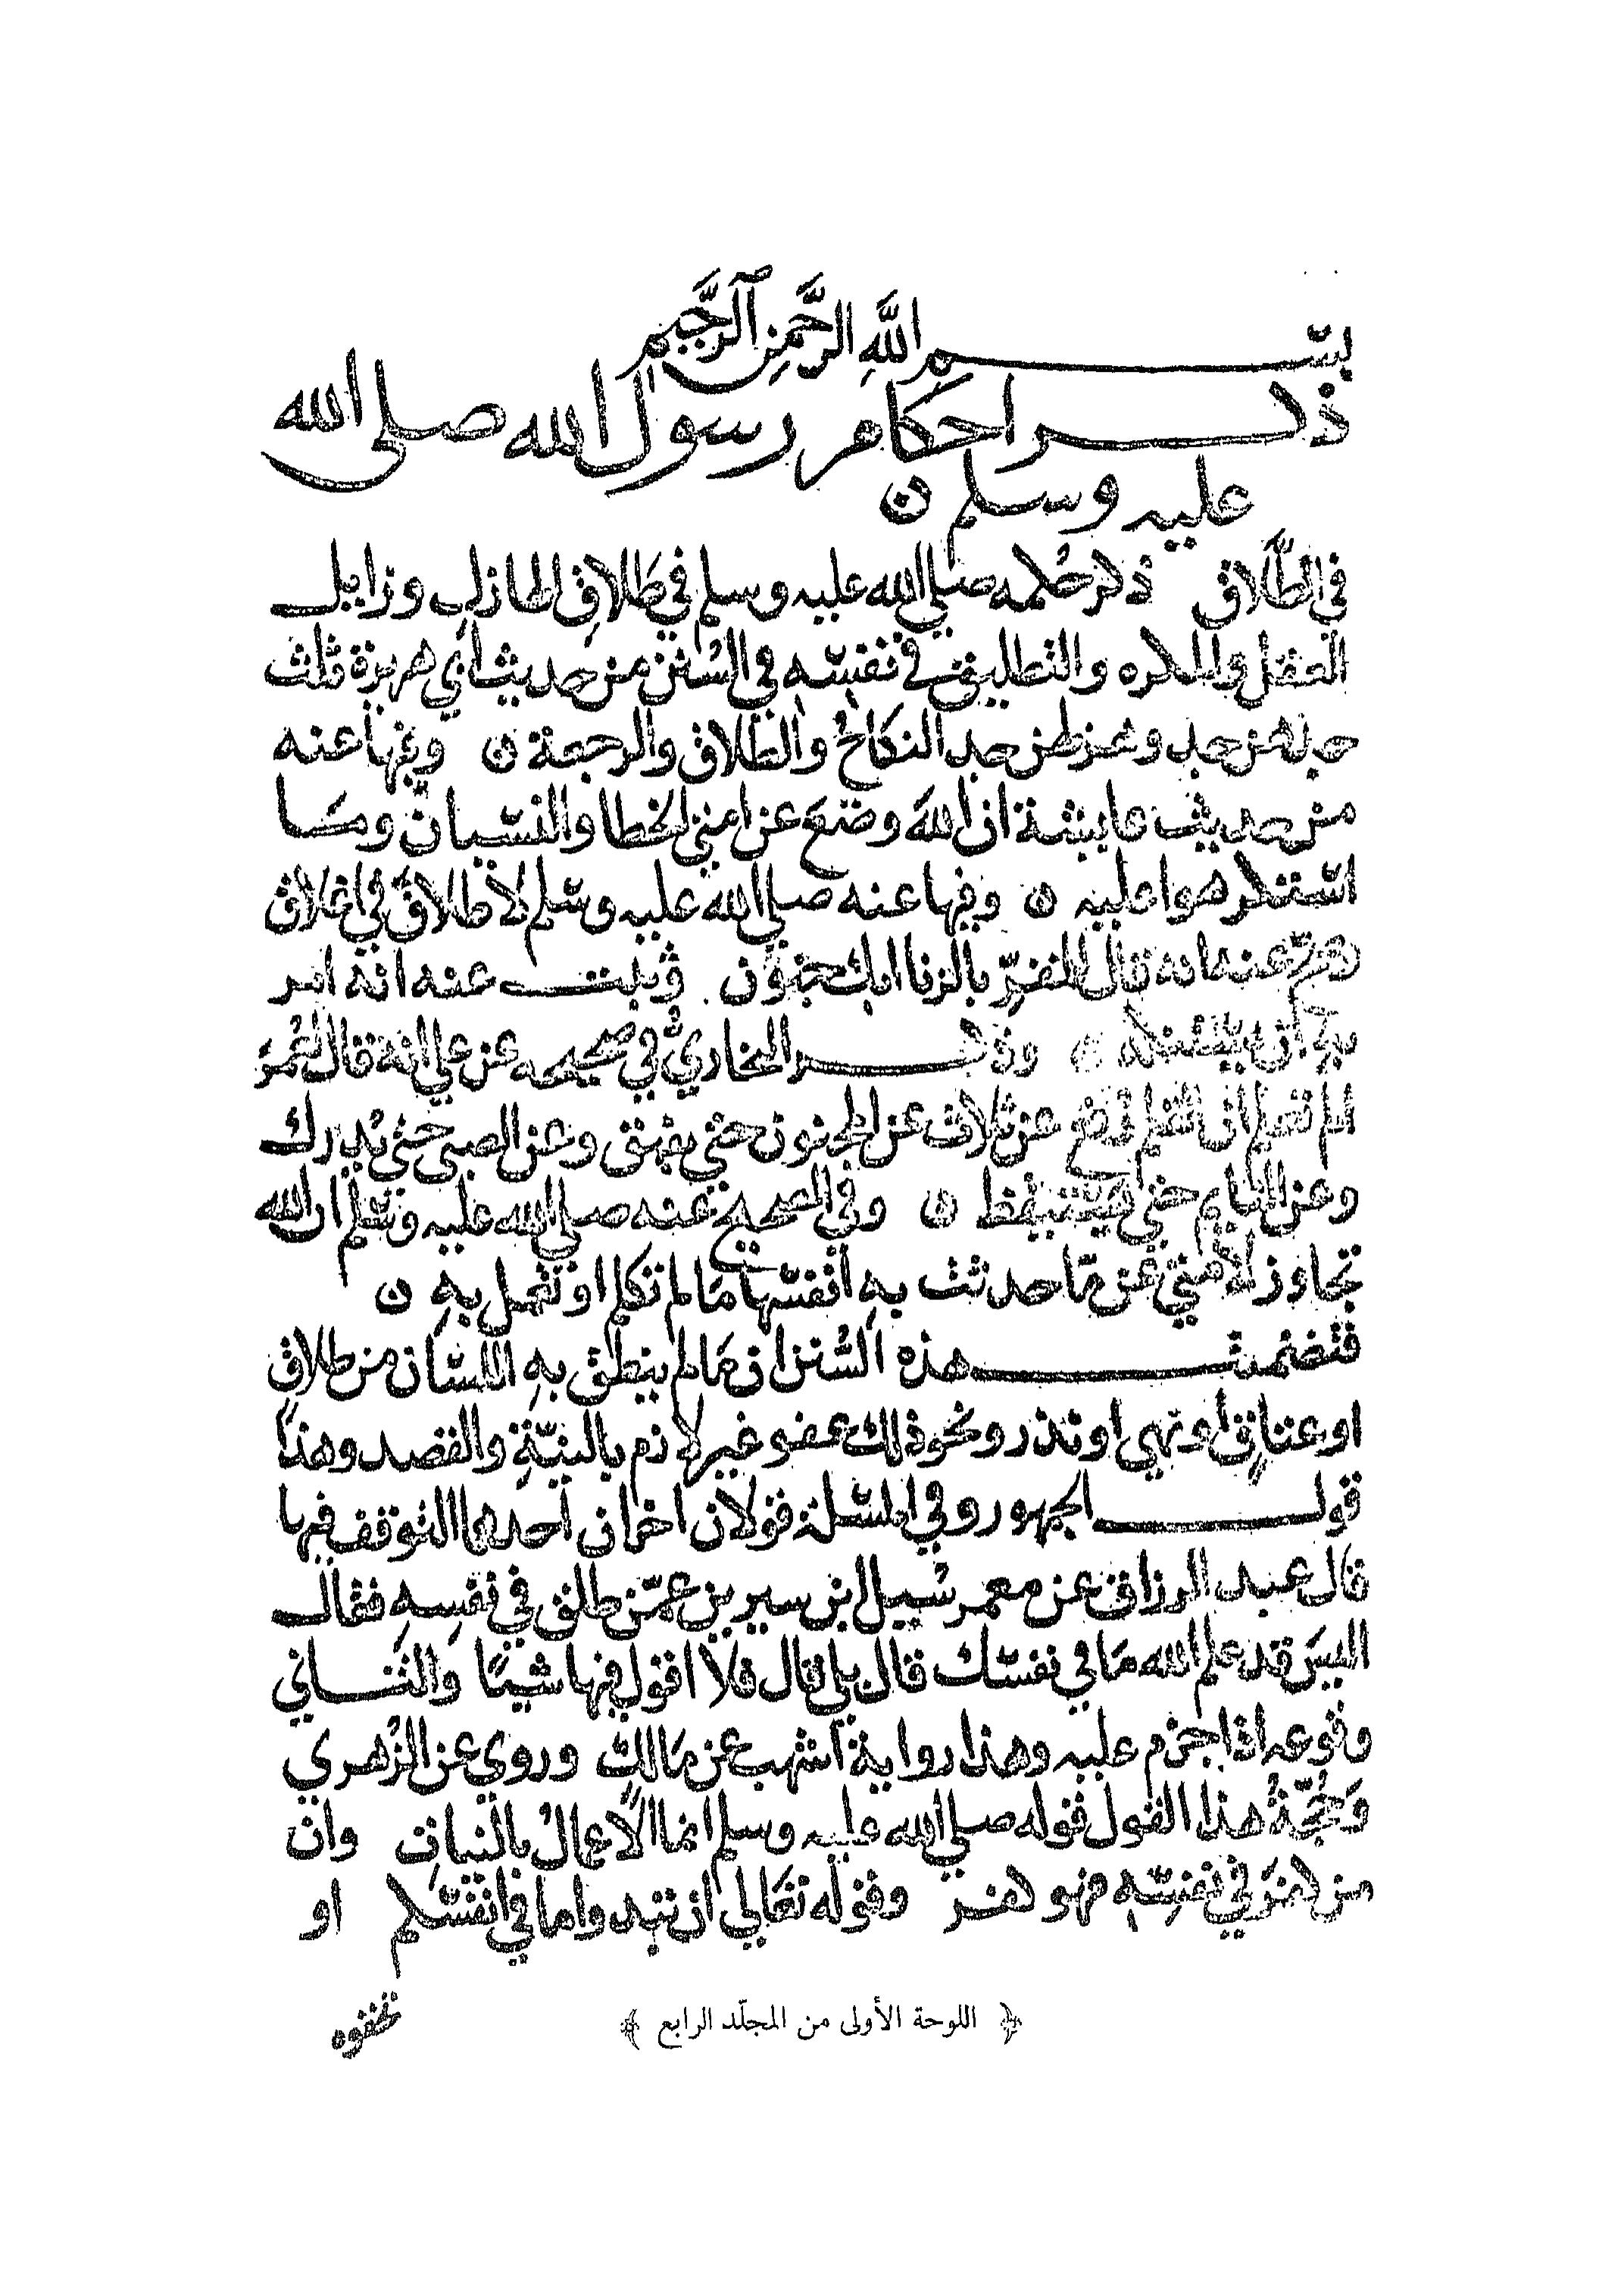 بسم اللهِ الرَّحْمنِ الرَّحيم
ذكر احكام رسول الله صلى الله
عليه وسلم ن
في الطَّلاق ذكر حُكمه صلي الله عليه وسلم في طَلاقِ الهازل وزايل
العقل والمكره والتطليق في نفسه في السُنن من حديث ابي هريرة ثلث
جدهن جد وهزلهن جد النكاحُ والطلاق والرجعة ن وفيها عنه
من حديث عايشة ان اللهَ وضع عن امتي الخطا والنسيان وما
استكرهوا عليه ن وفيها عنه صلي الله عليه وسلم لا طلاقَ في اغلاق
وصح عنه انه قال للمقرِّ بالزنا ابك جنون وثبت عنه انه امر
به ان يستنكه ن وذكر البخاريُّ في صحيحه عن علي انه قال لعُمر
الم تعلم ان القلم رفع عن ثلاث عن المجنون حتي يفيق وعن الصبي حتي يُدرك
وعن النايم حتي يستيقظ ن وفي الصحيح عنه صلي الله عليه وسلم ان الله
تجاوز لامتي عن ما حدثت بهِ انفسها مَا لم تكلم او تعمل بهِ ن
فتضمنت هذه السُنن ان مَا لم ينطق بهِ اللسان من طلاقٍ
او عتاقٍ او يمين او نذر ونحو ذلك عفو غير لازم بالنيّةِ والقصد وهذا
قول الجمهور وفي المسلة قولان اخران احدهما التوقف فيها
قال عبد الرزاق عن معمر سُيل ابن سيرين عمّن طلق في نفسِهِ فقال
اليسَ قد علم الله مَا في نفسك قال بلي قال فلا اقول فيها شيئًا والثاني
وقوعه اذا جزم عليه وهذا رواية اشهب عن مَالكٍ وروي عن الزُهري
وَحُجّةُ هذا القول قوله صلي الله عليه وسلم انما الاعمالُ بالنيات وان
من كفرَ في نفسِهِ فهو كفر وقوله تعَالي ان تبدوا ما في انفسكم او
تخفوه
﴿ اللوحة الأولى من المجلّد الرابع ﴾